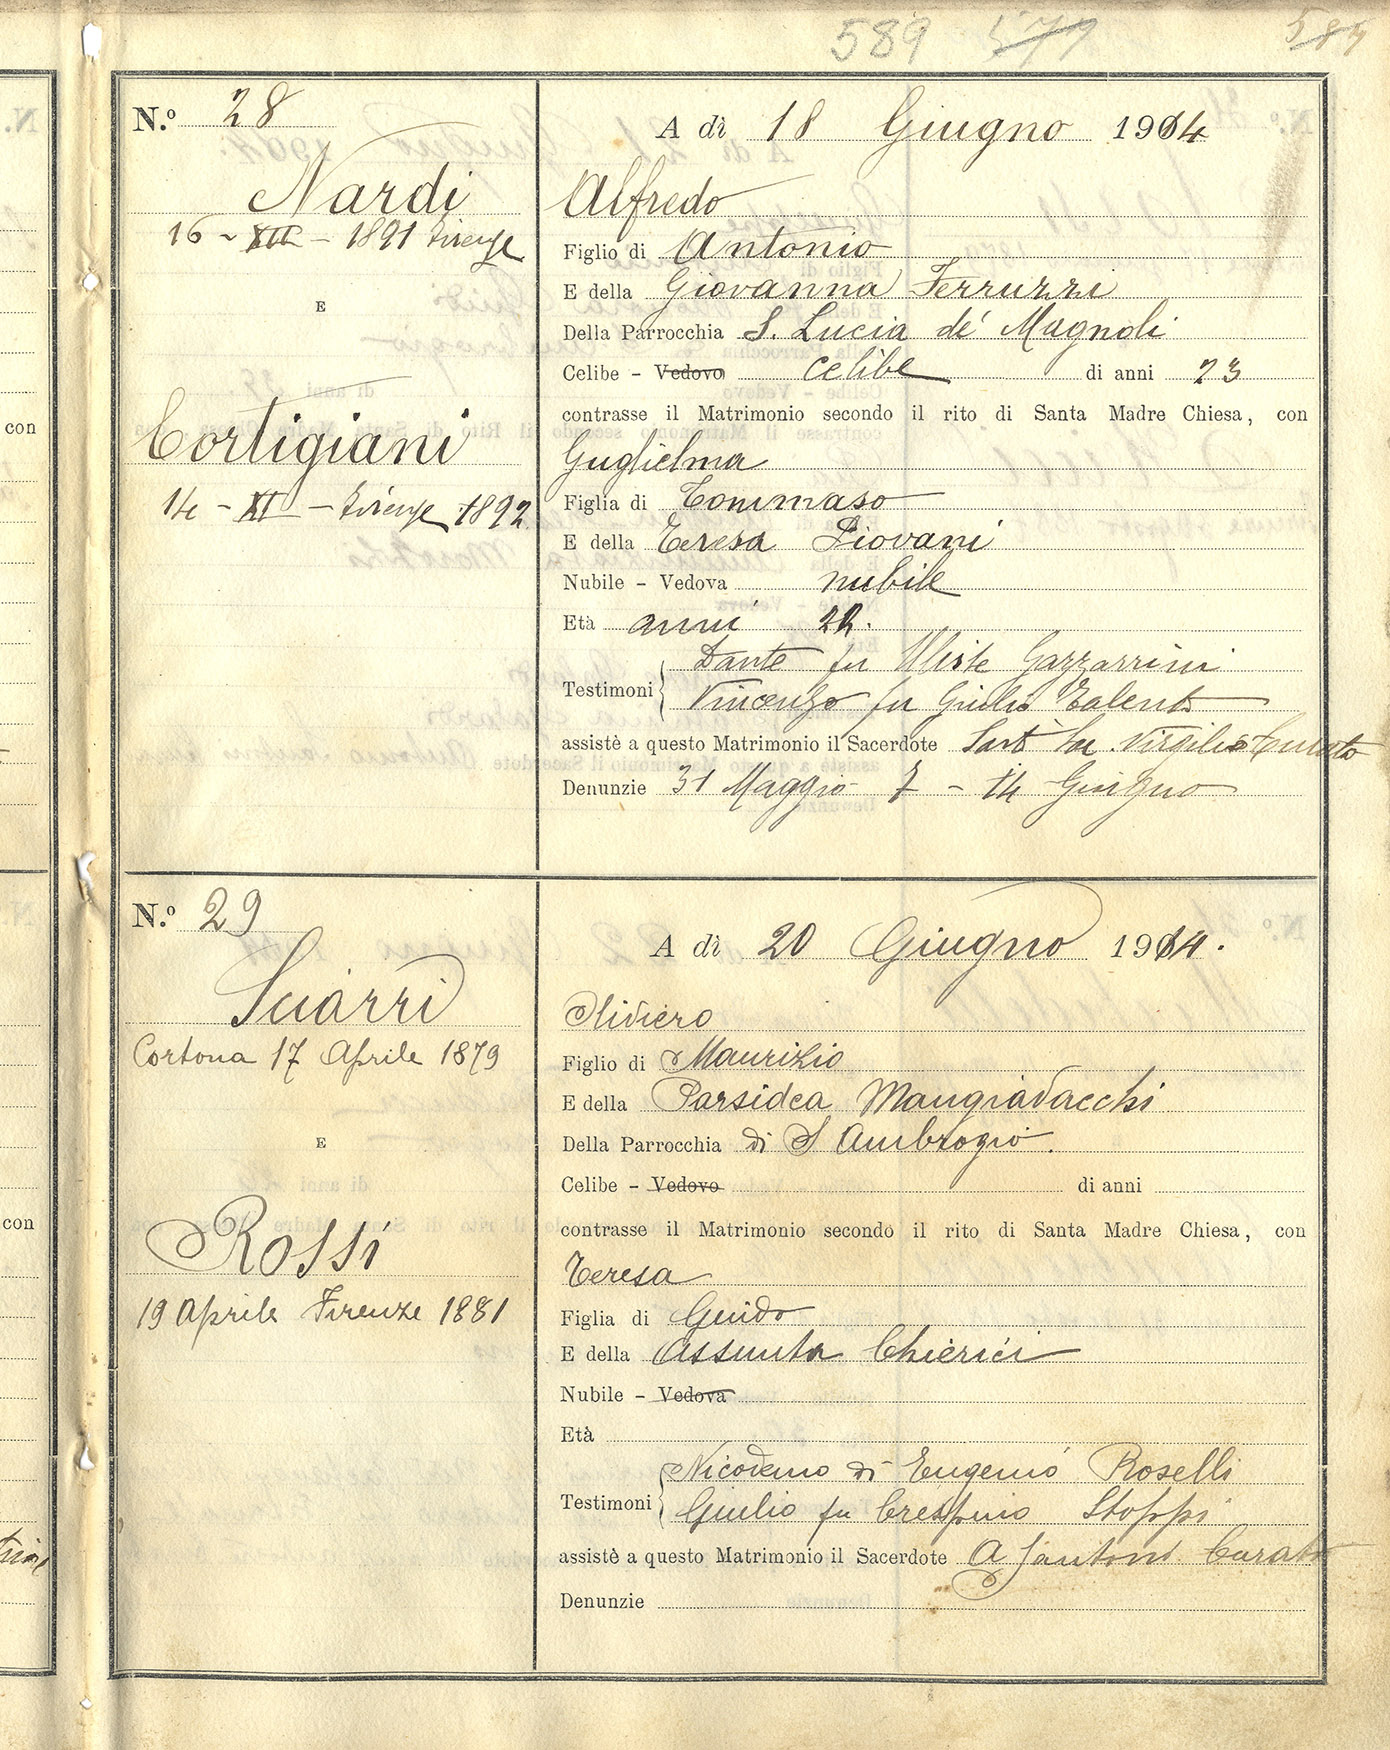 589 579 589
N.º 28
Nardi
16 - XII - 1891 Firenze
E
Cortigiani
14 - XI - Firenze 1892
A dì 18 Giugno 1914
Alfredo
Figlio di Antonio
E della Giovanna Ferruzzi
Della Parrocchia S. Lucia dé Magnoli
Celibe - Vedovo celibe di anni 23
contrasse il Matrimonio secondo il rito di Santa Madre Chiesa, con
Guglielma
Figlia di Tommaso
E della Teresa Piovani
Nubile - Vedova nubile
Età anni 22.
Testimoni Dante fu Ulisse Gazzarrini
Vincenzo fu Giulio Talenti
assistè a questo Matrimonio il Sacerdote Virgilio Curato
Denunzie 31 Maggio 7 - 14 Giugno
N.º 29
Sciarri
Cortona 17 Aprile 1879
E
Rossi
19 Aprile Firenze 1881
A dì 20 Giugno 1914.
Oliviero
Figlio di Maurizio
E della Parsidea Mangiavacchi
Della Parrocchia di S Ambrogio.
Celibe - Vedovo di anni
contrasse il Matrimonio secondo il rito di Santa Madre Chiesa, con
Teresa
Figlia di Guido
E della Assunta Chierici
Nubile - Vedova
Età
Testimoni Nicodemo di Eugenio Roselli
Giulio fu Crespino Stoppi
assistè a questo Matrimonio il Sacerdote A Santoni Curato
Denunzie
con
con